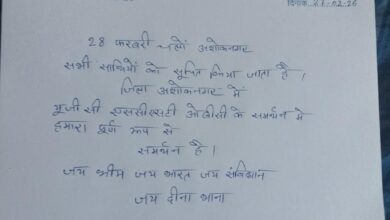 दिनांक 27-02-26
28 फरवरी चलों अशोकनगर
सभी साथियों को सूचित किया जाता है।
जिला अशोकनगर में
यूजी सी एससीएसटी ओबीसी के समर्थन में
हमारा पूर्ण रूप से
समर्थन है।
जय भीम जय भारत जय संविधान
जय दीना भाना